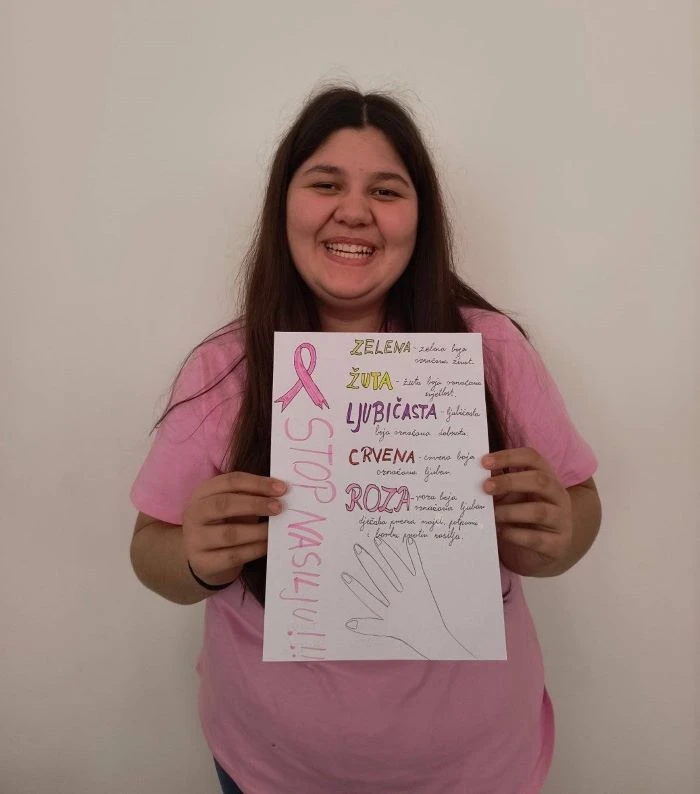 ZELENA - zelena boja
označava život.
ŽUTA - žuta boja označava
svjetlost.
LJUBIČASTA - ljubičasta
boja označava dobrotu.
CRVENA - crvena boja
označava ljubav.
ROZA - roza boja
označava ljubav
dječaka prema majci, potpunu
i borbu protiv nasilja.
STOP NASILJU!!!